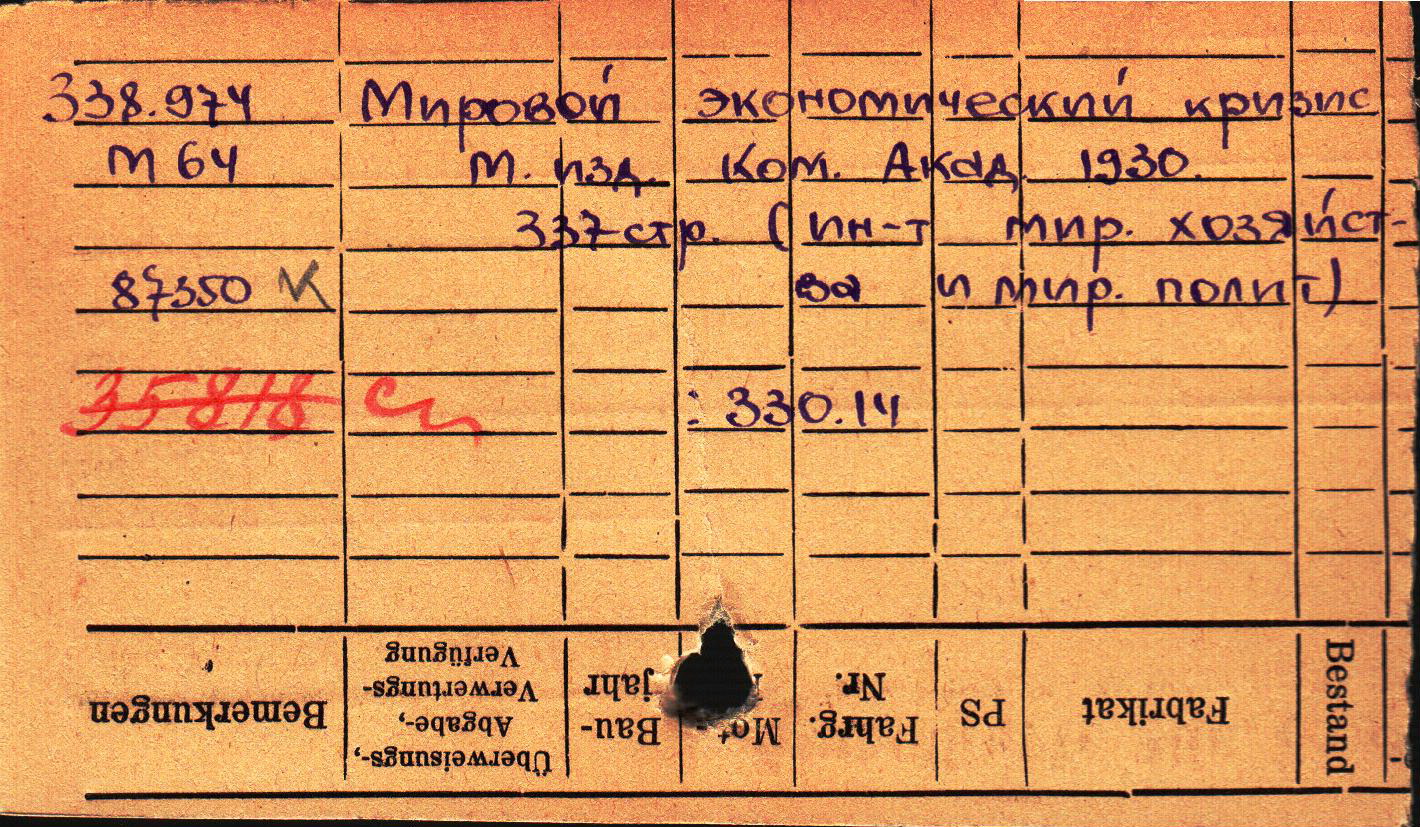 338.974 Мировой экономический кризис
М 64 М. изд. Ком. Акад. 1930.
337 стр. (ин-т мир. хозяйст-
87350 ва и мир. полит)
35818
: 330.14
Bemerkungen
Überweisungs-,
Abgabe-,
Verwertungs-
Verfügung
Bau-
jahr
Mot
Fahrg.
Nr.
PS
Fabrikat
Bestand